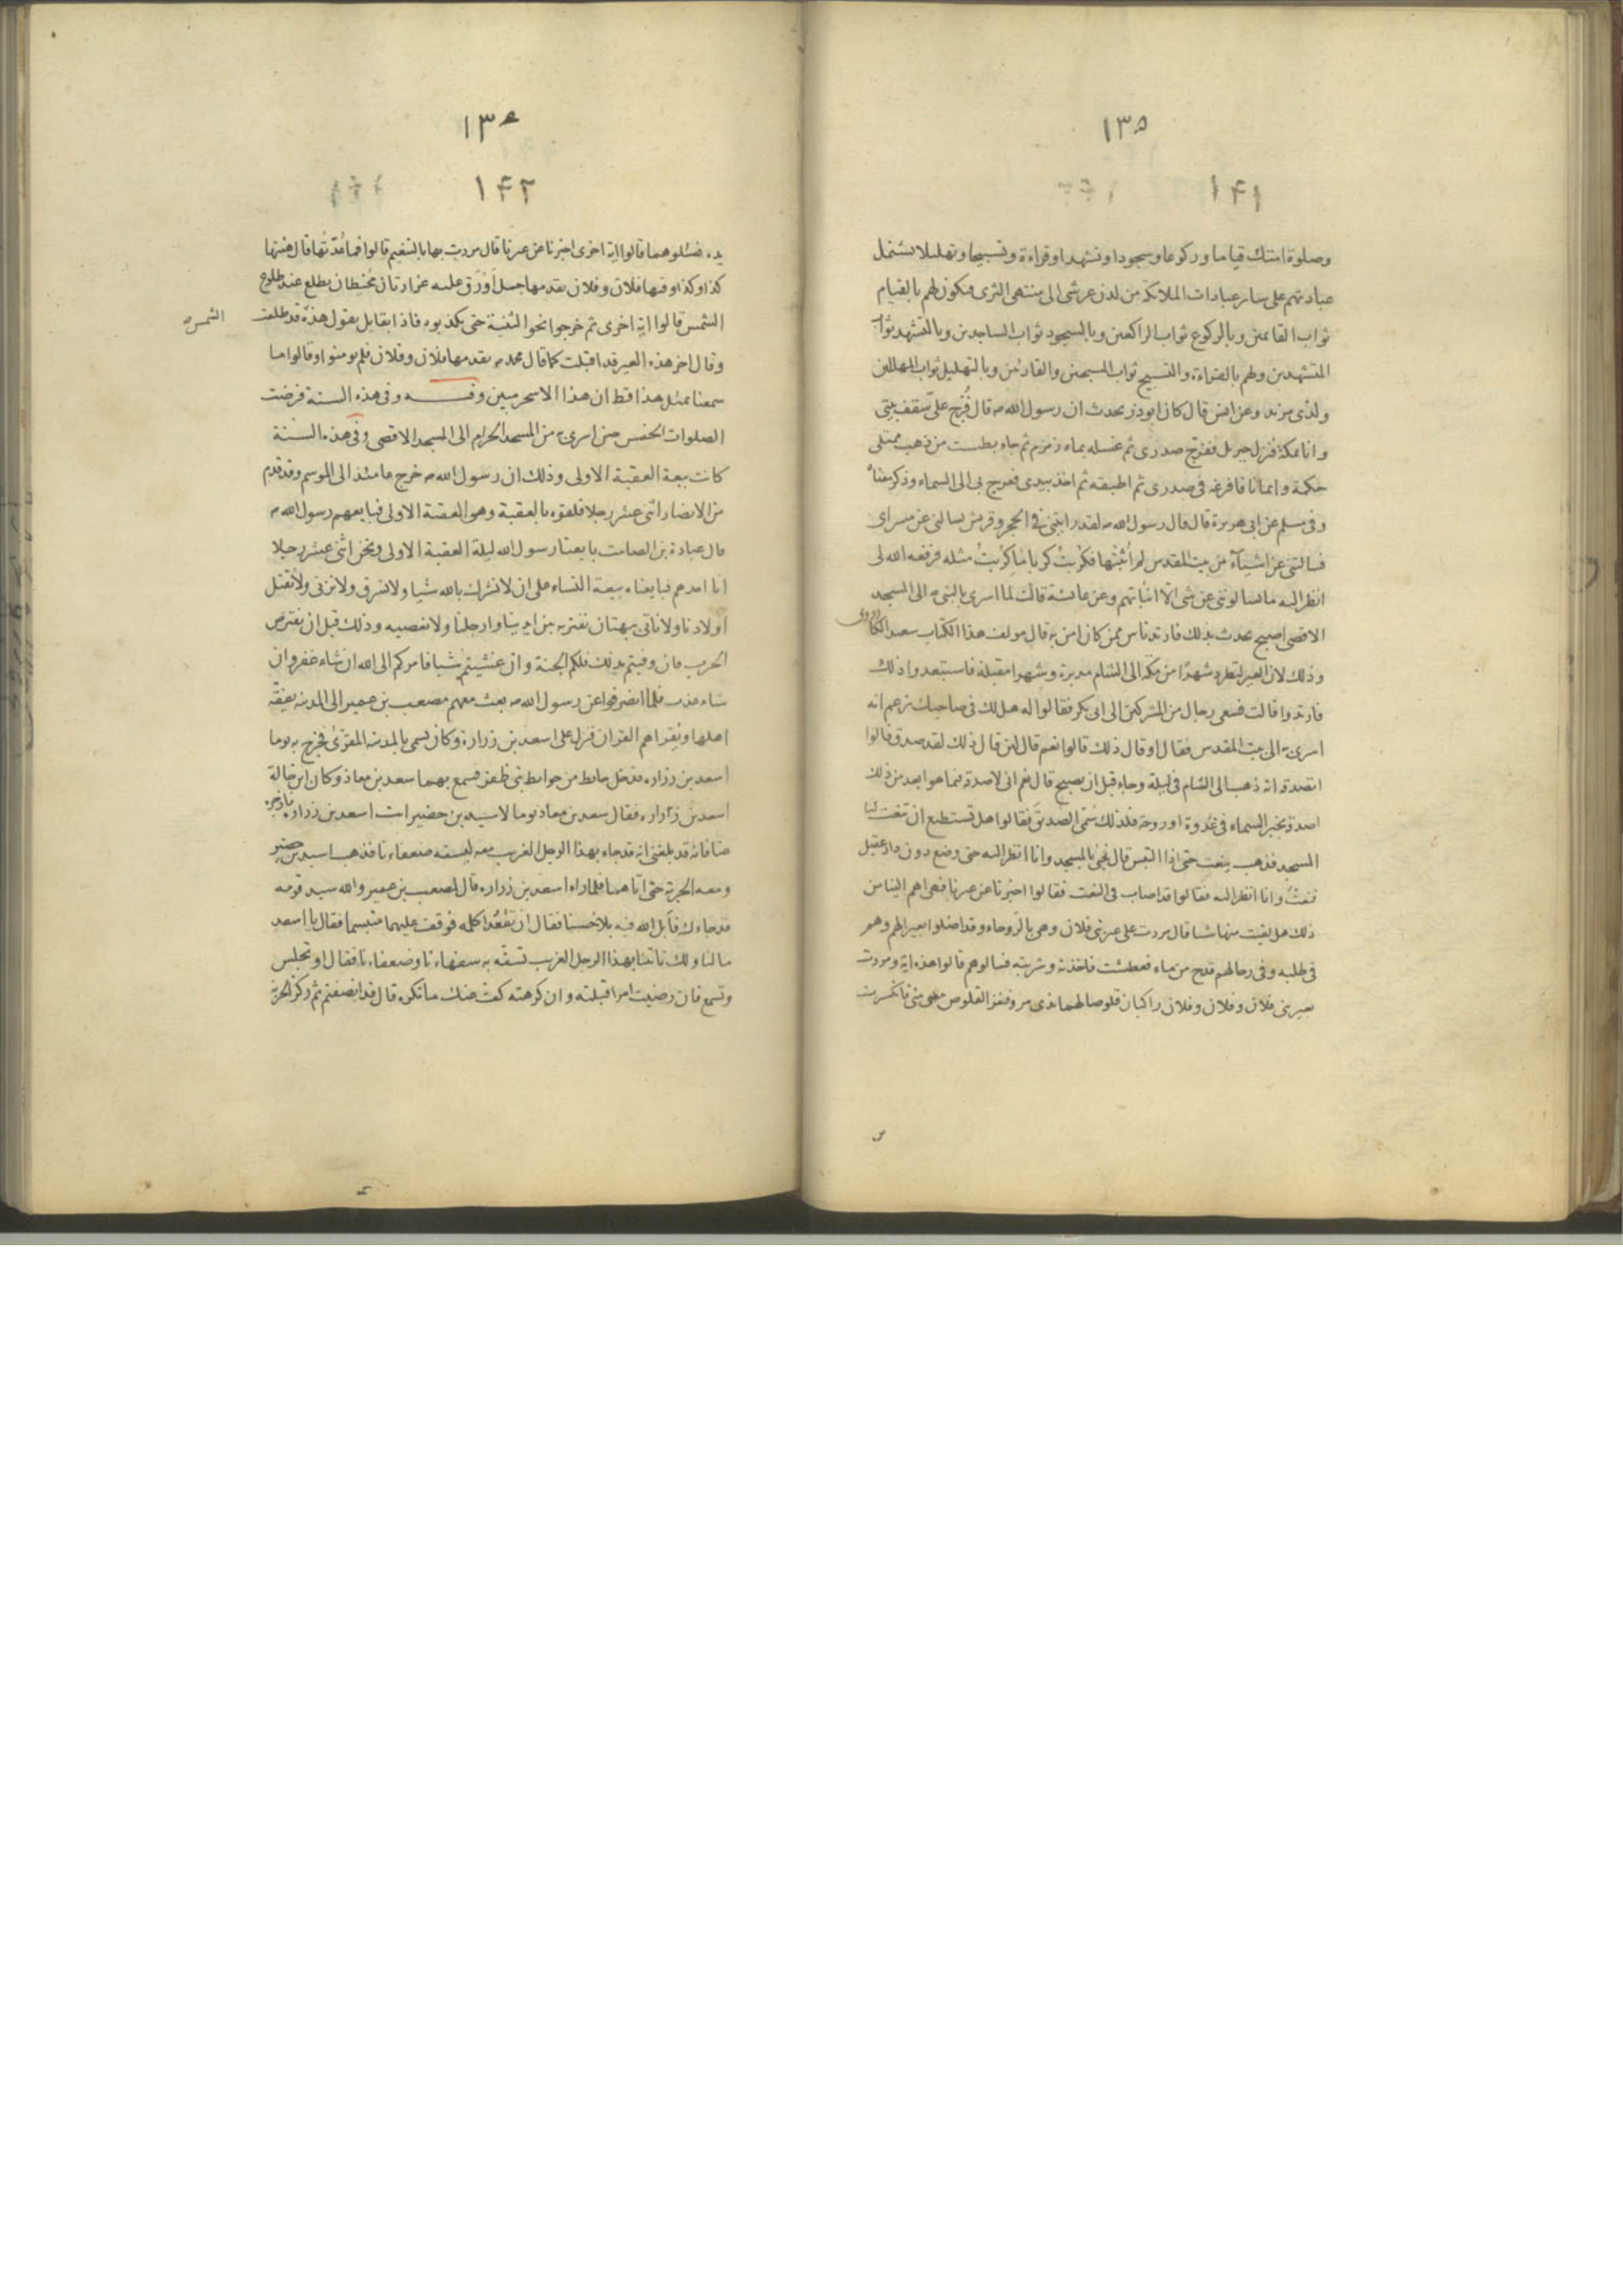 ١٣٥
١٤١
وصلوة امتك قياما وركوعا وسجودا وتشهدا وقراءة وتسبيحا وتهليلا لتشتمل
عبادتهم على سائر عبادات الملائكة من لدن عرشى الى منتهى الثرى فيكون لهم بالقيام
ثواب القائمين وبالركوع ثواب الراكعين وبالسجود ثواب الساجدين وبالتشهد ثواب
المتشهدين ولهم بالقراءة والتسبيح ثواب المسبحين والقارئين وبالتهليل ثواب المهللين
ولدى مزيد وعن انس قال كان ابوذر يحدث ان رسول الله ص قال فُرّج على سقف بيتى
وانا بمكة فنزل جبريل ففرج صدرى ثم غسله بماء زمزم ثم جاء بطست من ذهب ممتلى
حكمة وايمانا فافرغه فى صدرى ثم اطبقه ثم اخذ بيدى فعرج بى الى السماء وذكر معناه
وفى مسلم عن ابى هريرة قال قال رسول الله ص لقد رايتنى فى الحجر وقريش تسالنى عن مسراى
فسالتنى عن اشياء من بيت المقدس لم اُثبتها فكربتُ كربا ما كربتُ مثله فرفعه الله لى
انظر اليه ما يسالونى عن شى الا انباتهم وعن عائشة قالت لما اسرى بالنبى ص الى المسجد
الاقصى اصبح يحدث بذلك فارتد ناس ممن كان امن به قال مولف هذا الكتاب سعد الكازرونى
وذلك لان العير لتطرد شهرًا من مكة الى الشام مدبرة وشهرا مقبلة فاستبعدوا ذلك
فارتدوا قالت فسعى رجال من المشركين الى ابى بكر فقالوا له هل لك فى صاحبك يزعم انه
اسرى به الى بيت المقدس فقال او قال ذلك قالوا نعم قال لئن قال ذلك لقد صدق قالوا
اتصدقه انه ذهب الى الشام فى ليلة وجاء قبل ان يصبح قال نعم انى لاصدقه بما هو ابعد من ذلك
اصدقه بخبر السماء فى غدوة او روحة فلذلك سُمّى الصديق فقالوا هل تستطيع ان تنعت لنا
المسجد فذهب ينعت حتى اذا التبس قال فجئ بالمسجد وانا انظر اليه حتى وضع دون دار عقيل
فنعتُه وانا انظر اليه فقالوا قد اصاب فى النعت فقالوا اخبرنا عن عيرنا فهى اهم الينا من
ذلك هل لقيت منها شيا قال مررت على عير بنى فلان وهى بالروحاء وقد اضلوا بعيرا لهم وهم
فى طلبه وفى رحالهم قدح من ماء فعطشت فاخذته وشربته فسالوهم قالوا هذه اية ومررت
بعير بنى فلان وفلان وفلان راكبان قلوصا لهما بذى مر فنفر القلوص منى فانكسرت
١٣٥
١٤٢
يده فسلوهما قالوا اية اخرى اخبرنا عن عيرنا قال مررت بها بالتنعيم قالوا فما عُدّتُها قال هيئتها
كذا وكذا وفيها فلان وفلان يقدمها جمل اَورَق عليه غرارتان مُخيطتان يطلع عند طلوع
الشمس قالوا اية اخرى ثم خرجوا نحو الثنية حتى يكذبوه فاذا بقايل يقول هذه قد طلعت
الشمس
وقال اخر هذه العير قد اقبلت كما قال محمد ص يقدمها فلان وفلان فلم يومنوا وقالوا ما
سمعنا بمثل هذا قط ان هذا الا سحر مبين وفى هذه السنة فرضت
الصلوات الخمس حين اسرى به من المسجد الحرام الى المسجد الاقصى وفى هذه السنة
كانت بيعة العقبة الاولى وذلك ان رسول الله ص خرج عامئذ الى الموسم وقد قدم
من الانصار اثنى عشر رجلا فلقوه بالعقبة وهى العقبة الاولى فبايعهم رسول الله ص
قال عبادة بن الصامت بايعنا رسول الله ليلة العقبة الاولى ونحن اثنى عشر رجلا
انا احدهم فبايعناه بيعة النساء على ان لا نشرك بالله شيا ولا نسرق ولا نزنى ولا نقتل
اولادنا ولا ناتى ببهتان نفتريه بين ايدينا وارجلنا ولا نعصيه وذلك قبل ان يفترض
الحرب فان وفيتم بذلك فلكم الجنة وان غشيتم شيا فامركم الى الله ان شاء غفر وان
شاء عذب فلما انصرفوا عن رسول الله ص بعث معهم مصعب بن عمير الى المدينه يفقّه
اهلها ويُقراهم القران فنزل على اسعد بن زرارة وكان يسمى بالمدينه المقرئ فخرج به يوما
اسعد بن زراره فدخل حائط من حوائط بنى ظفر فسمع بهما سعد بن معاذ وكان ابن خالة
اسعد بن زراره فقال سعد بن معاذ يوما لاسيد بن حضير ائت اسعد بن زراره فازجره
عنا فانه قد بلغنى انه قد جاء بهذا الرجل الغريب معه ليسفه ضعفاءنا فذهب اسيد بن حضير
ومعه الحربة حتى اتاهما فلما راه اسعد بن زراره قال لمصعب بن عمير والله سيد قومه
قد جاءك فاَبل الله فيه بلاء حسنا فقال ان يقعُد اكلمه فوقف عليهما متبسما فقال يا اسعد
ما لنا ولك تاتينا بهذا الرجل الغريب تسفّه به سفهاءنا وضعفاءنا فقال او تجلس
وتسمع فان رضيت امرا قبلته وان كرهته كف عنك ما تكره قال قد انصفتم ثم ركز الحربة